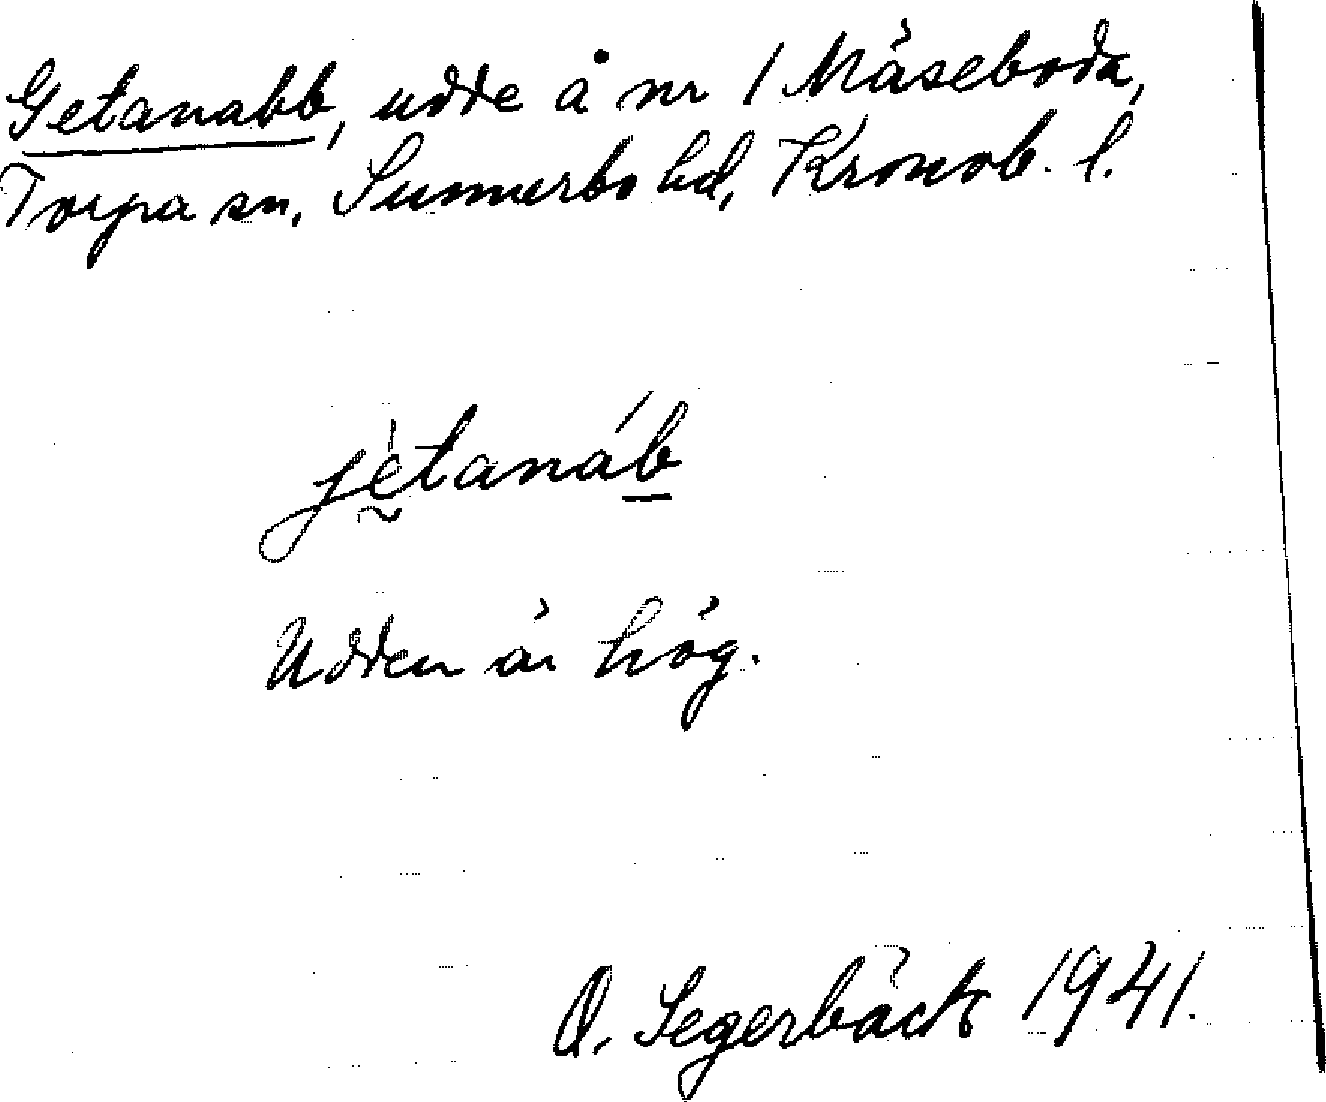 Getanabb, udde å nr 1 Mäseboda,
Torpa sn, Sunnerbo hd, Kronob. l.
jètanáb
Udden är hög.
O. Segerbäck 1941.